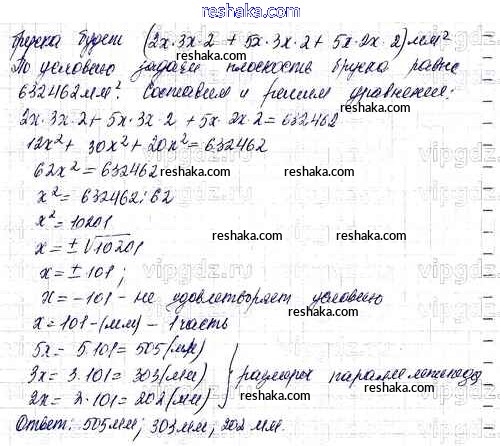 www.reshaka.com
бруска будет (2x·3x·2 + 5x·3x·2 + 5x·2x·2) мм²
По условию задачи плоскость бруска равна
632462 мм². Составим и решим уравнение:
2x·3x·2 + 5x·3x·2 + 5x·2x·2 = 632462
12x² + 30x² + 20x² = 632462
62x² = 632462
x² = 632462:62
x² = 10201
x = ±√10201
x = ±101;
x = -101 - не удовлетворяет условию
x = 101 - (мм) - 1 часть
5x = 5·101 = 505 (мм)
3x = 3·101 = 303 (мм) } размеры параллелепипеда
2x = 2·101 = 202 (мм)
Ответ: 505 мм; 303 мм; 202 мм.
reshaka.com
reshaka.com
reshaka.com
reshaka.com
reshaka.com
reshaka.com
reshaka.com
reshaka.com
vipgdz.ru